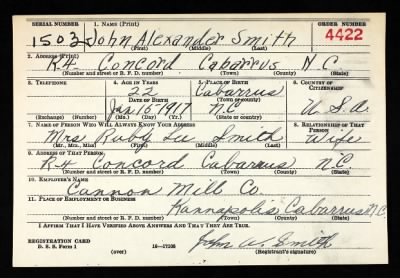 SERIAL NUMBER 1. NAME (Print) ORDER NUMBER
1503 John Alexander Smith 4422
(First) (Middle) (Last)
2. ADDRESS (Print)
R4 Concord Cabarrus N C
(Number and street or R. F. D. number) (Town) (County) (State)
3. TELEPHONE 4. AGE IN YEARS 5. PLACE OF BIRTH 6. COUNTRY OF CITIZENSHIP
22 Cabarrus
DATE OF BIRTH (Town or county)
Jan 1917 N.C. U.S.A.
(Exchange) (Number) (Mo.) (Day) (Yr.) (State or country)
7. NAME OF PERSON WHO WILL ALWAYS KNOW YOUR ADDRESS 8. RELATIONSHIP OF THAT PERSON
Mrs Ruby Lee Smith Wife
(Mr., Mrs., Miss) (First) (Middle) (Last)
9. ADDRESS OF THAT PERSON
R4 Concord Cabarrus N.C.
(Number and street or R. F. D. number) (Town) (County) (State)
10. EMPLOYER'S NAME
Cannon Mill Co.
11. PLACE OF EMPLOYMENT OR BUSINESS
Kannapolis Cabarrus N.C.
(Number and street or R. F. D. number) (Town) (County) (State)
I AFFIRM THAT I HAVE VERIFIED ABOVE ANSWERS AND THAT THEY ARE TRUE.
REGISTRATION CARD
D. S. S. Form 1 (over) 16—17105 John A. Smith
(Registrant's signature)